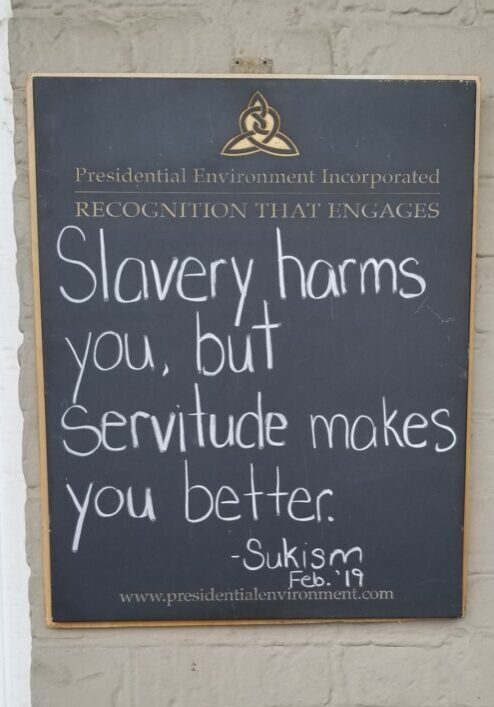 Presidential Environment Incorporated
RECOGNITION THAT ENGAGES
Slavery harms
you, but
servitude makes
you better.
-Sukism
Feb. '19
www.presidentialenvironment.com